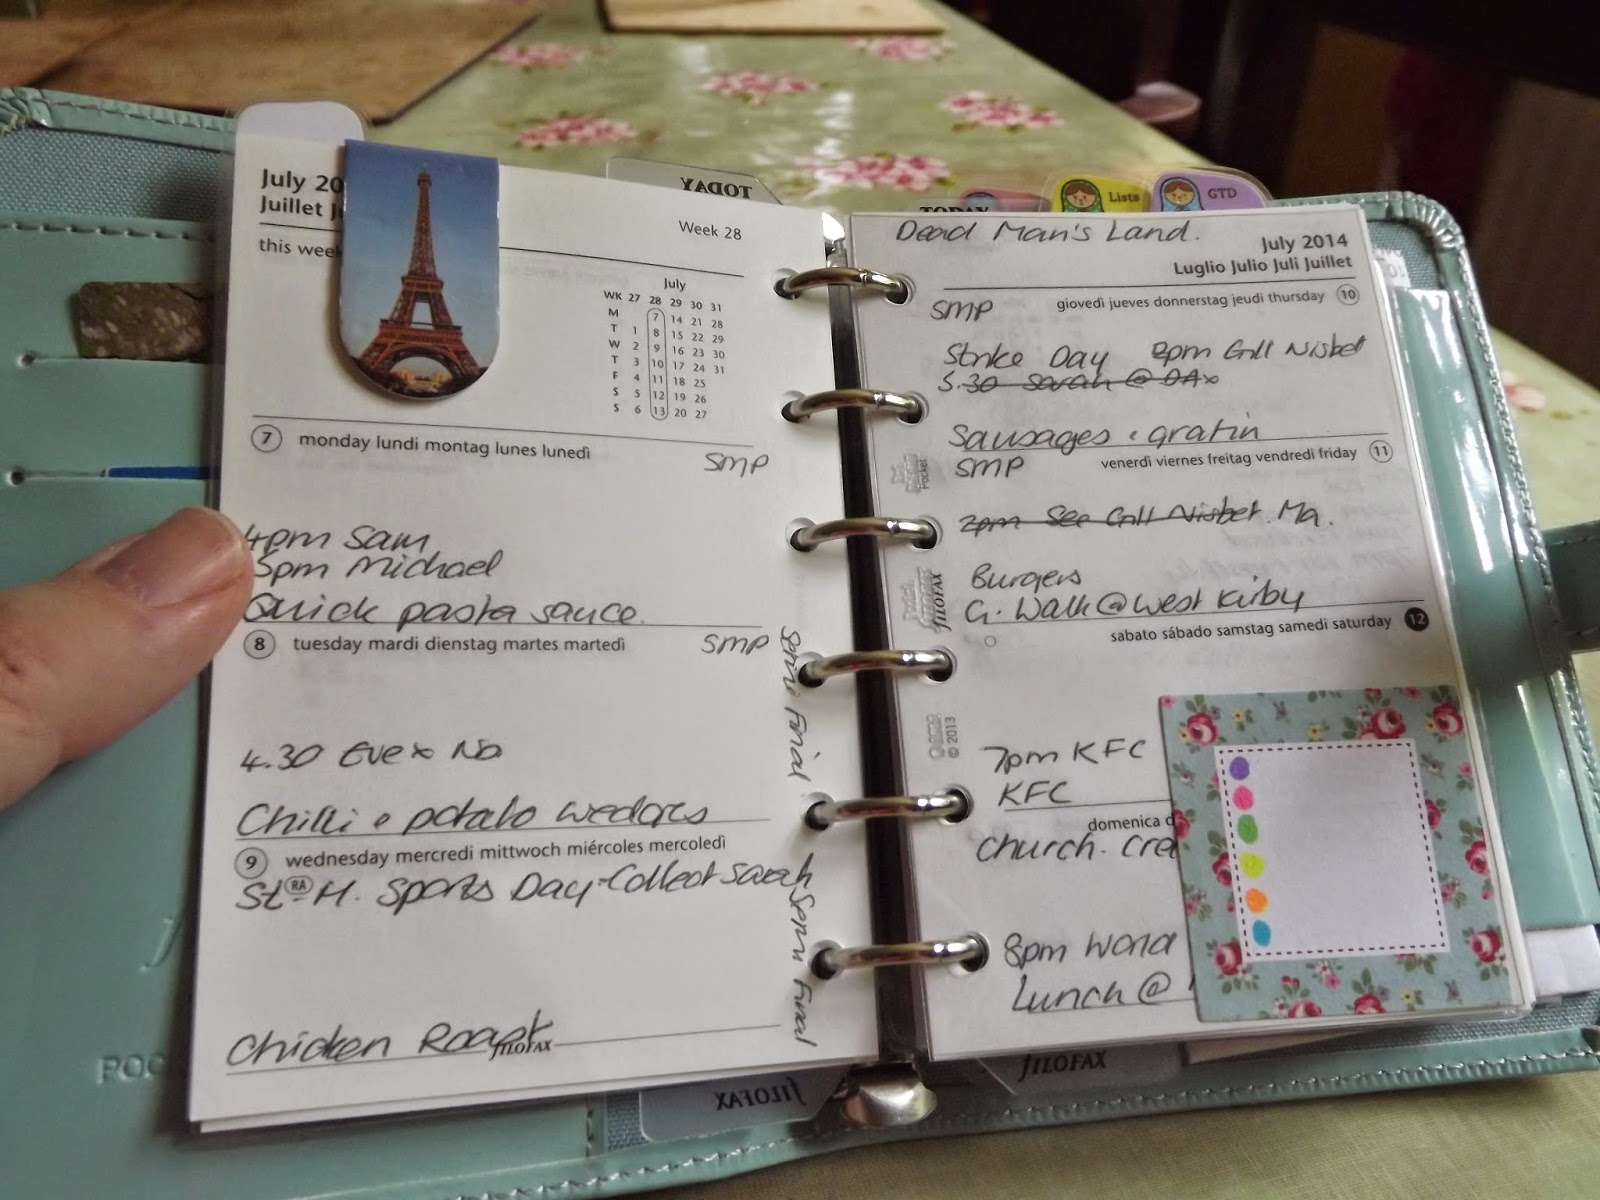 TODAY
Lists
GTD
July 20
Juillet
this week
Week 28
July
WK 27 28 29 30 31
M 7 14 21 28
T 1 8 15 22 29
W 2 9 16 23 30
T 3 10 17 24 31
F 4 11 18 25
S 5 12 19 26
S 6 13 20 27
7 monday lundi montag lunes lunedì
SMP
4pm Sam
5pm Michael
Quick pasta sauce.
8 tuesday mardi dienstag martes martedì
SMP
Semi Final
4.30 Eve
Chilli & potato wedges
9 wednesday mercredi mittwoch miércoles mercoledì
St H. Sports Day - Collect Sarah
RA
Semi Final
Chicken Roast
fILOFAX
Dead Man's Land.
July 2014
Luglio Julio Juli Juillet
giovedì jueves donnerstag jeudi thursday 10
SMP
Strike Day 2pm Gill Nisbet
5.30 Sarah @
Sausages & gratin
venerdì viernes freitag vendredi friday 11
SMP
2pm See Gill Nisbet Ma.
Burgers
G. Walk @ West Kirby
sabato sábado samstag samedi saturday 12
7pm KFC
KFC
domenica d
Church. Cre
8pm World
Lunch @
Pocket
fILOFAX
© 2013
POC
fILOFAX
fILOFAX